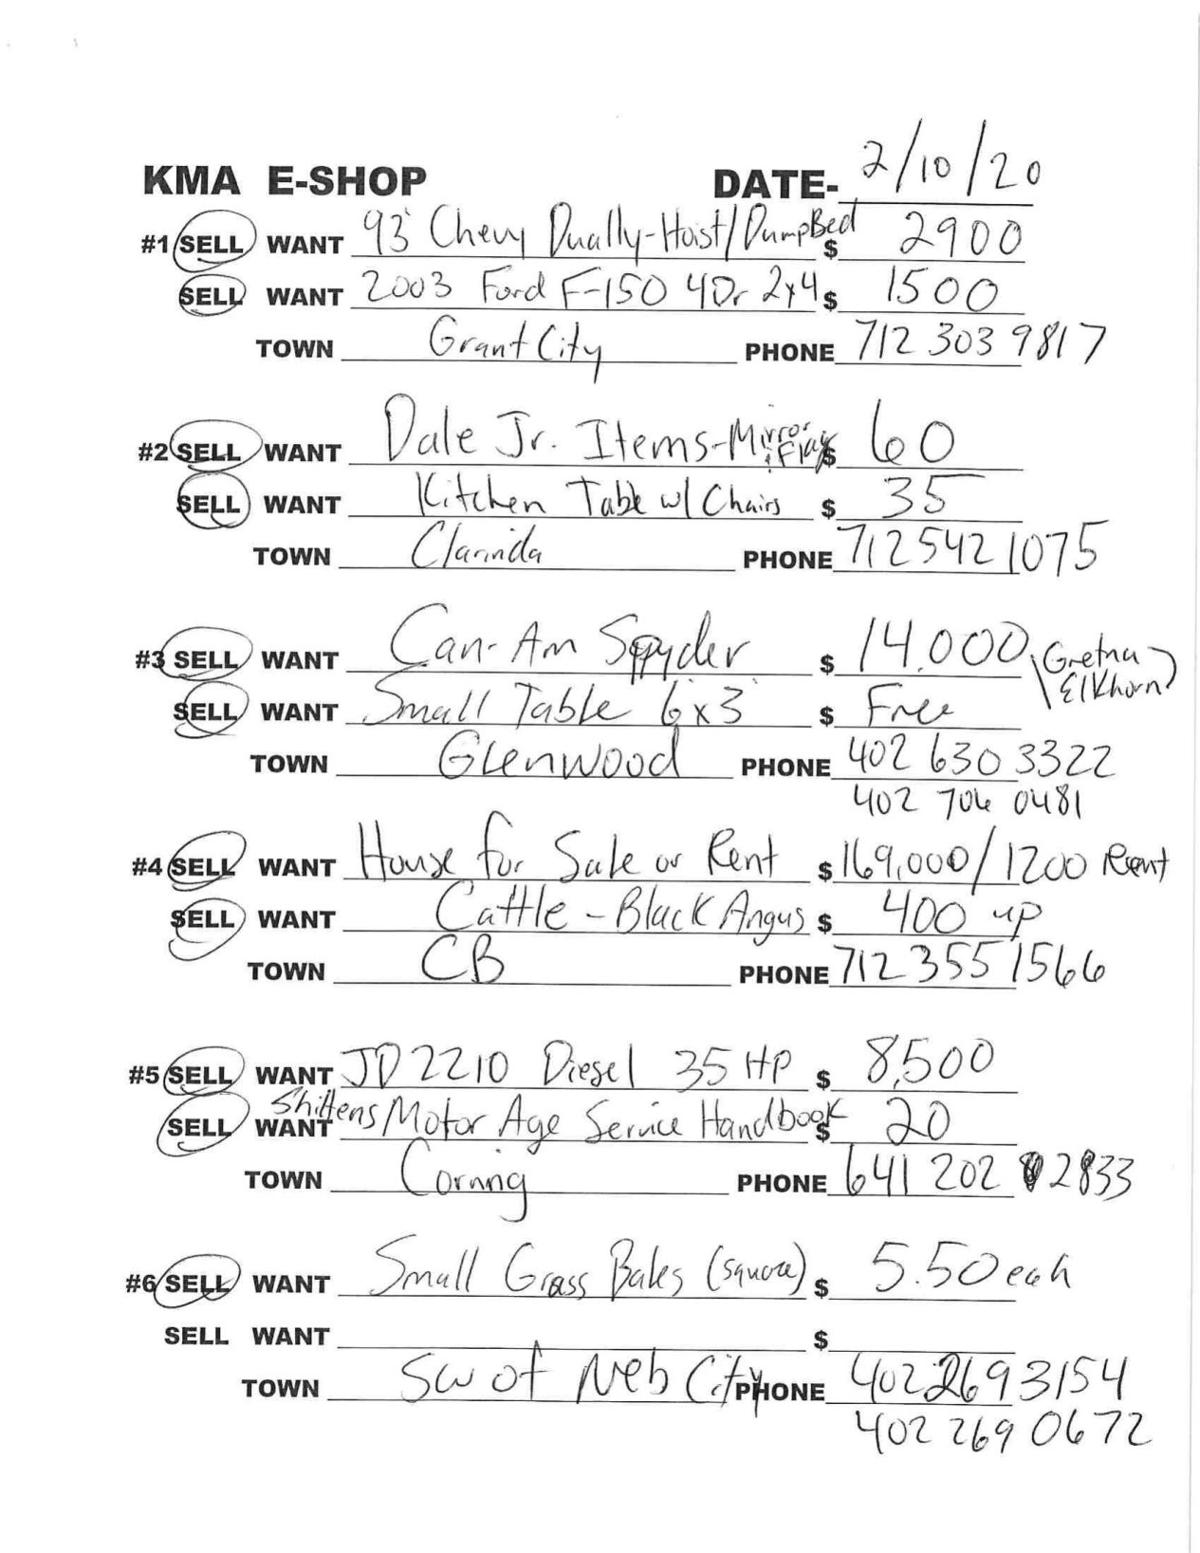 KMA E-SHOP DATE- 2/10/20
#1 SELL WANT 93' Chevy Dually-Hoist/DumpBed $ 2900
SELL WANT 2003 Ford F-150 4Dr 2x4 $ 1500
TOWN Grant City PHONE 712 303 9817
#2 SELL WANT Dale Jr. Items-Mirror + Flags $ 60
SELL WANT Kitchen Table w/ Chairs $ 35
TOWN Clarinda PHONE 712 542 1075
#3 SELL WANT Can-Am Spyder $ 14,000 (Gretna
Elkhorn)
SELL WANT Small Table 6'x3' $ Free
TOWN Glenwood PHONE 402 630 3322
402 706 0481
#4 SELL WANT House for Sale or Rent $ 169,000/1200 Rent
SELL WANT Cattle - Black Angus $ 400 up
TOWN CB PHONE 712 355 1566
#5 SELL WANT JD 2210 Diesel 35 HP $ 8,500
SELL WANT Shiltens Motor Age Service Handbook $ 20
TOWN Corning PHONE 641 202 2833
#6 SELL WANT Small Grass Bales (square) $ 5.50 each
SELL WANT $
TOWN SW of Neb City PHONE 402 269 3154
402 269 0672